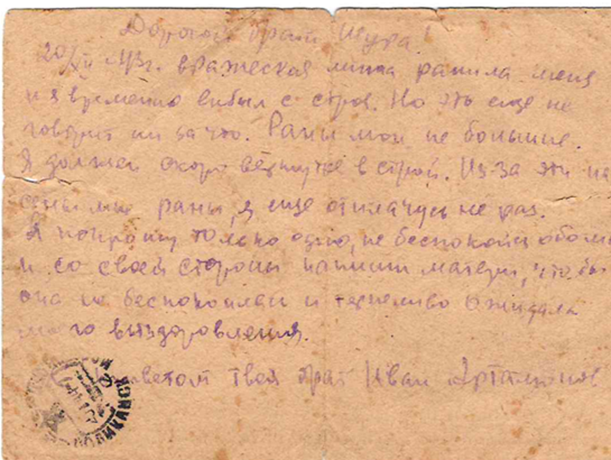 Дорогой брат Шура!
20/VII 43г. вражеская мина ранила меня
и я временно выбыл с строя. Но это еще не
говорит ни за что. Раны мои не большие.
Я должен скоро вернутся в строй. Из-за эти на
мне раны, я еще отплачусь не раз.
Я попрошу только одно, не беспокойся обо мн
и со своей стороны напиши матери, что бы
она не беспокоилась и терпеливо ожидала
моего выздоровления.
твой брат Иван Артамонов